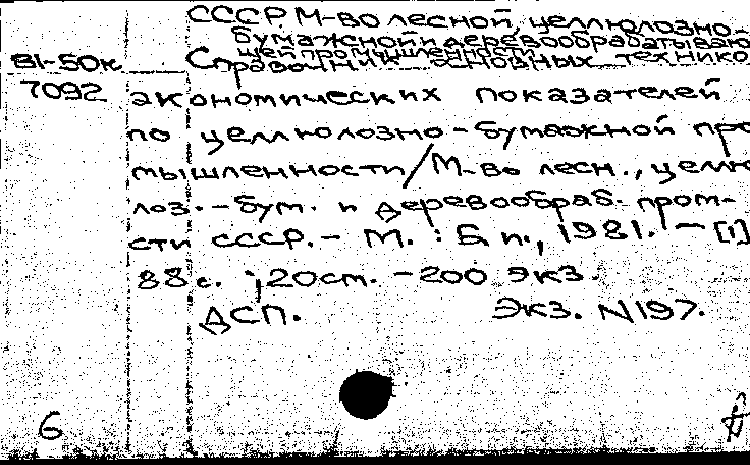 СССР. М-во лесной, целлюлозно-
бумажной и деревообрабатываю
щей промышленности
81-50к Справочник основных технико
7092 экономических показателей
по целлюлозно-бумажной про
мышленности/М-во лесн., целлю
лоз.-бум. и деревообраб. пром-
сти СССР. - М. : Б. и., 1981. - [1]
88 с. ; 20 см. - 200 экз.
ДСП. Экз. N197.
6